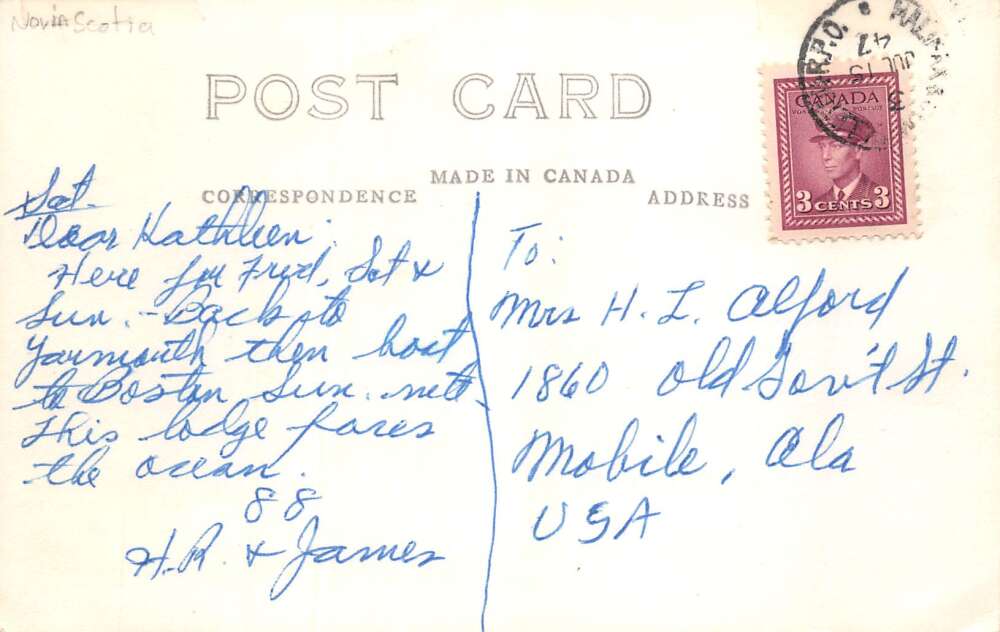 Novia Scotia
POST CARD
MADE IN CANADA
CORRESPONDENCE
ADDRESS
CANADA
3 CENTS 3
R.P.O. HALIFAX &
JUL 19
47
Sat.
Dear Kathleen:
Here for Frid, Sat &
Sun. - Back to
Yarmouth then boat
to Boston Sun. nite
This lodge faces
the ocean.
88
H.R. & James
To:
Mrs H. L. Alford
1860 Old Gov't St.
Mobile, Ala
USA